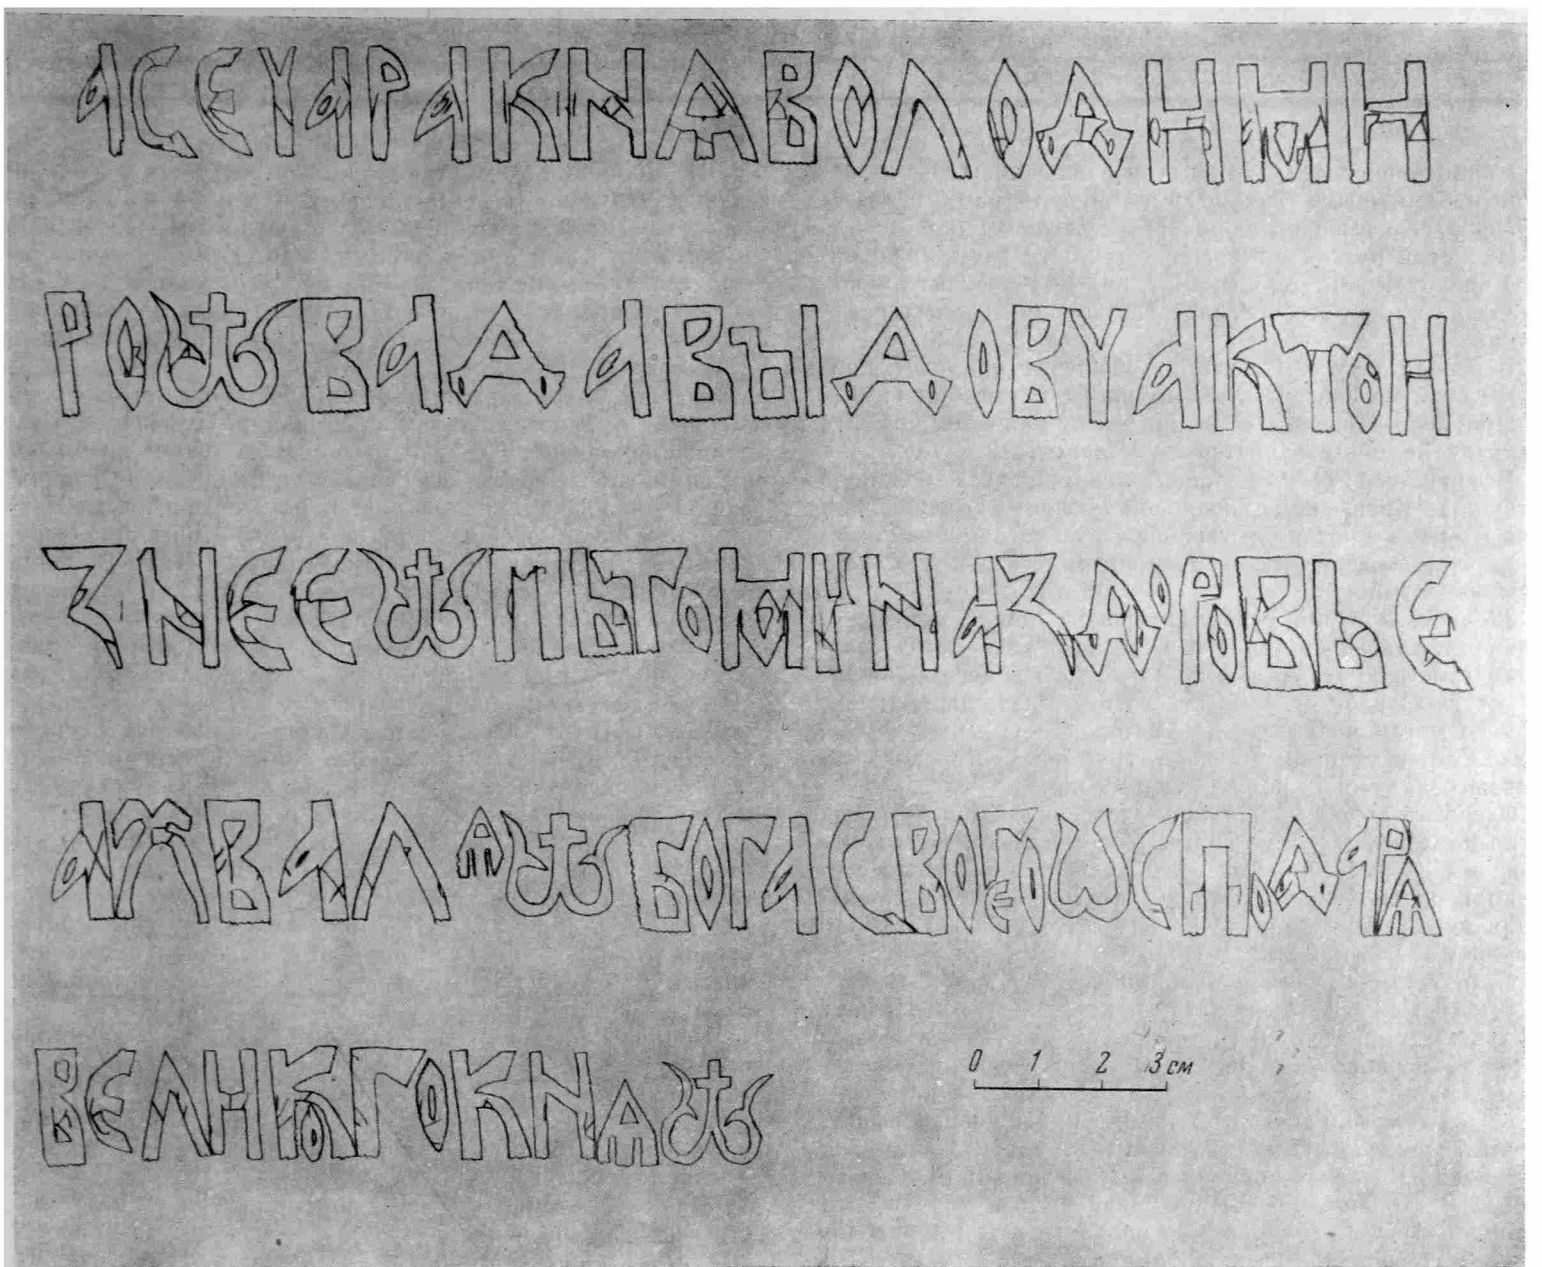 АСЕЧАРАКНѦВОЛОДИМИ
РО✝ВАДАВЫДОВЧАКТОИ
ЗНЕЕ✝ПЬТОМУНАЗДОРОВЬЕ
АХВАЛѦ✝БОГАСВОЕГОѠСПОДАРѦ
ВЕЛИКОГОКНѦ✝
0 1 2 3 см